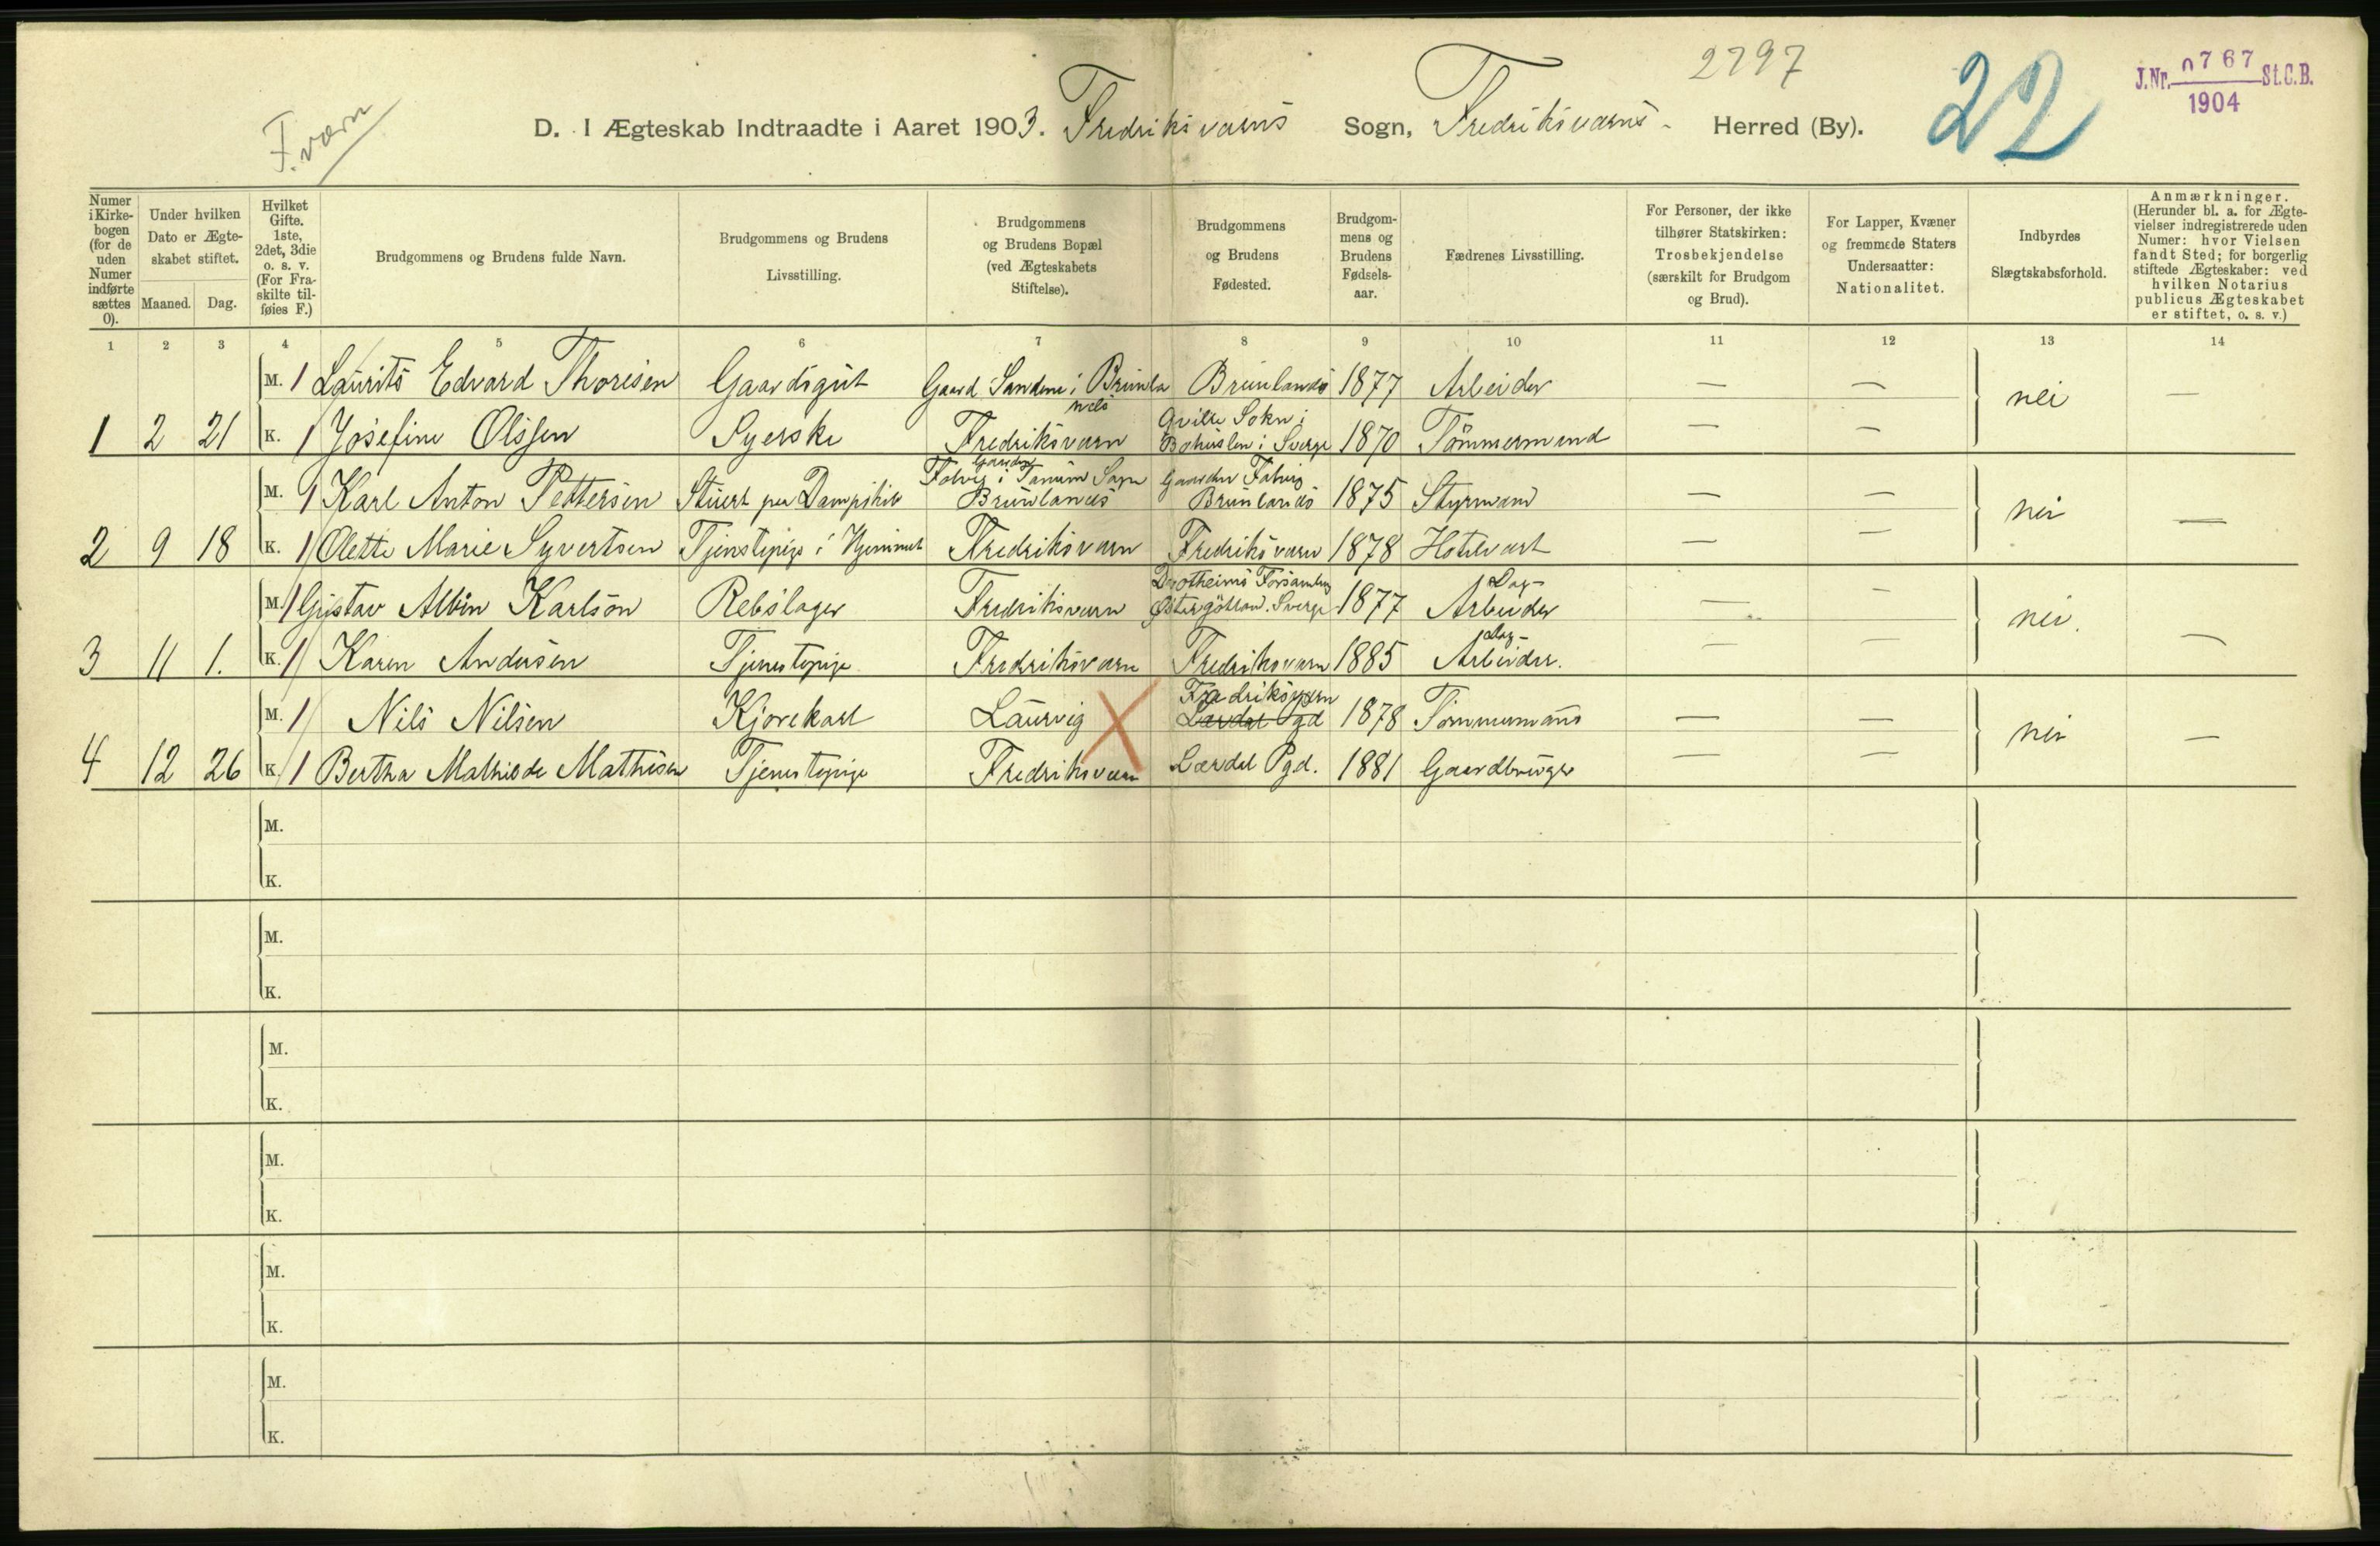 2797
22
J.Nr. 0767 St.C.B.
1904
F.værn
D. I Ægteskab Indtraadte i Aaret 1903. Fredriksværns Sogn, Fredriksværns - Herred (By).
Numer i Kirkebogen (for de uden Numer indførte sættes 0).
Under hvilken Dato er Ægteskabet stiftet.
Maaned. Dag.
Hvilket Gifte. 1ste, 2det, 3die o. s. v. (For Fraskilte tilføies F.)
Brudgommens og Brudens fulde Navn.
Brudgommens og Brudens Livsstilling.
Brudgommens og Brudens Bopæl (ved Ægteskabets Stiftelse).
Brudgommens og Brudens Fødested.
Brudgommens og Brudens Fødselsaar.
Fædrenes Livsstilling.
For Personer, der ikke tilhører Statskirken: Trosbekjendelse (særskilt for Brudgom og Brud).
For Lapper, Kvæner og fremmede Staters Undersaatter: Nationalitet.
Indbyrdes Slægtskabsforhold.
Anmærkninger. (Herunder bl. a. for Ægtevielser indregistrerede uden Numer: hvor Vielsen fandt Sted; for borgerlig stiftede Ægteskaber: ved hvilken Notarius publicus Ægteskabet er stiftet, o. s. v.)
1 2 3 4 5 6 7 8 9 10 11 12 13 14
M. 1 Laurits Edvard Thorisen Gaardsgut Gaard Sandene i Brunlanæs Brunlanæs 1877 Arbeider — — nei —
1 2 21 K. 1 Josefine Olssen Syerske Fredriksværn Qville Sokn i Bohuslen i Sverge 1870 Tömmermand — —
M. 1 Karl Anton Pettersen Stuert paa Dampskib Gaarden Falvig i Tanum Sogn Brunlanæs Gaarden Falvig Brunlanæs 1875 Styrmand — — nei —
2 9 18 K. 1 Olette Marie Syvertsen Tjenstepige i Hjemmet Fredriksværn Fredriksværn 1878 Hotelvært — —
M. 1 Gustav Albin Karlson Rebslager Fredriksværn Dorotheims Forsamling Östergötland. Sverge 1877 Dag- Arbeider — — nei. —
3 11 1. K. 1 Karen Andersen Tjenestepige Fredriksværn Fredriksværn 1885 Dag- Arbeider. — —
M. 1 Nils Nilsen Kjørekarl Laurvig X Fredriksværn Lardal Pgd 1878 Tömmermand — — nei —
4 12 26 K. 1 Bertha Mathilde Mathisen Tjenestepige Fredriksværn Lardal Pgd. 1881 Gaardbruger — —
M.
K.
M.
K.
M.
K.
M.
K.
M.
K.
M.
K.